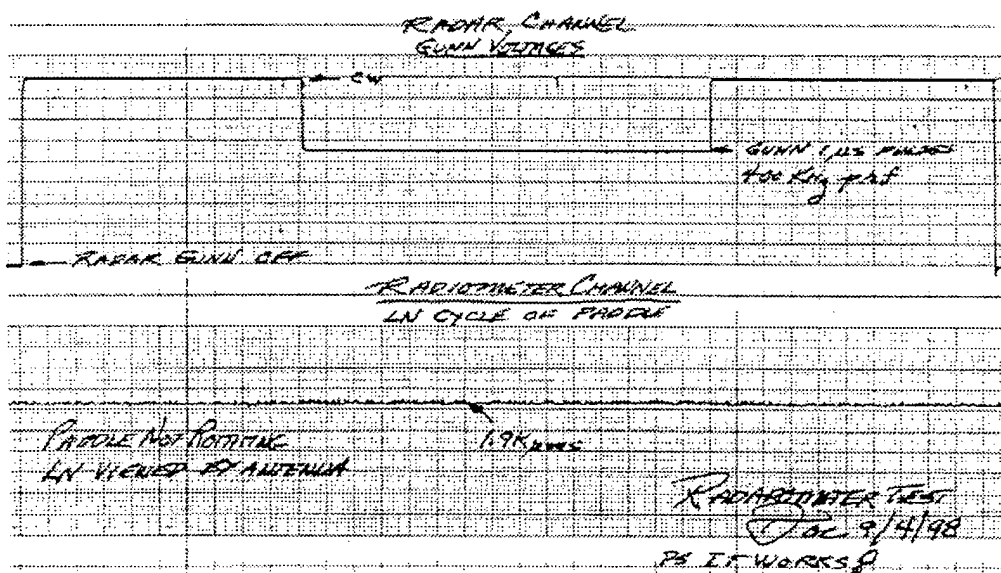 RADAR CHANNEL
GUNN VOLTAGES
CW
GUNN 1 µs PULSES
400 KHz prf
RADAR GUNN OFF
RADIOMETER CHANNEL
LN CYCLE OF PADDLE
PADDLE NOT ROTATING
LN VIENED BY ANTENNA
1.9K rms
RADAROMETER TEST
9/4/98
PS IT WORKS